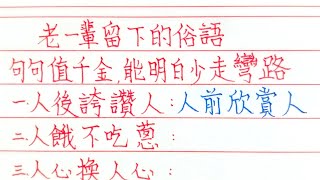 老一輩留下的俗語
句句值千金,能明白少走彎路
一.人後誇讚人:人前欣賞人
二.人餓不吃蔥:
三.人心換人心: